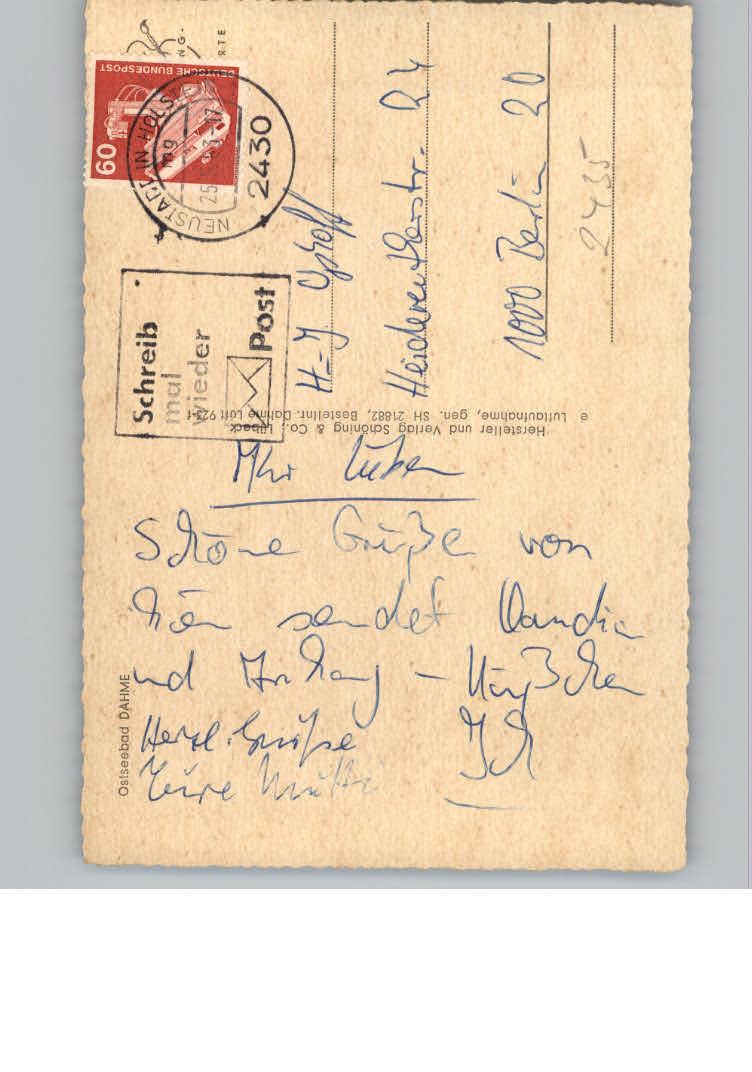 Ihr Lieben
Schöne Grüße von
hier sendet Claudia
und Anhang – Küßchen
Herzl. Grüße
Eure Mutti
Ich
H-J
Str. 24
1000 Berlin 20
2435
Ostseebad DAHME
Hersteller und Verlag Schöning & Co., Lübeck
Luftaufnahme, gen. SH 21882, Bestellnr. Dahme Luft 923
Schreib
mal
wieder
Post
DEUTSCHE BUNDESPOST
60
NEUSTADT IN HOLST
2430
25